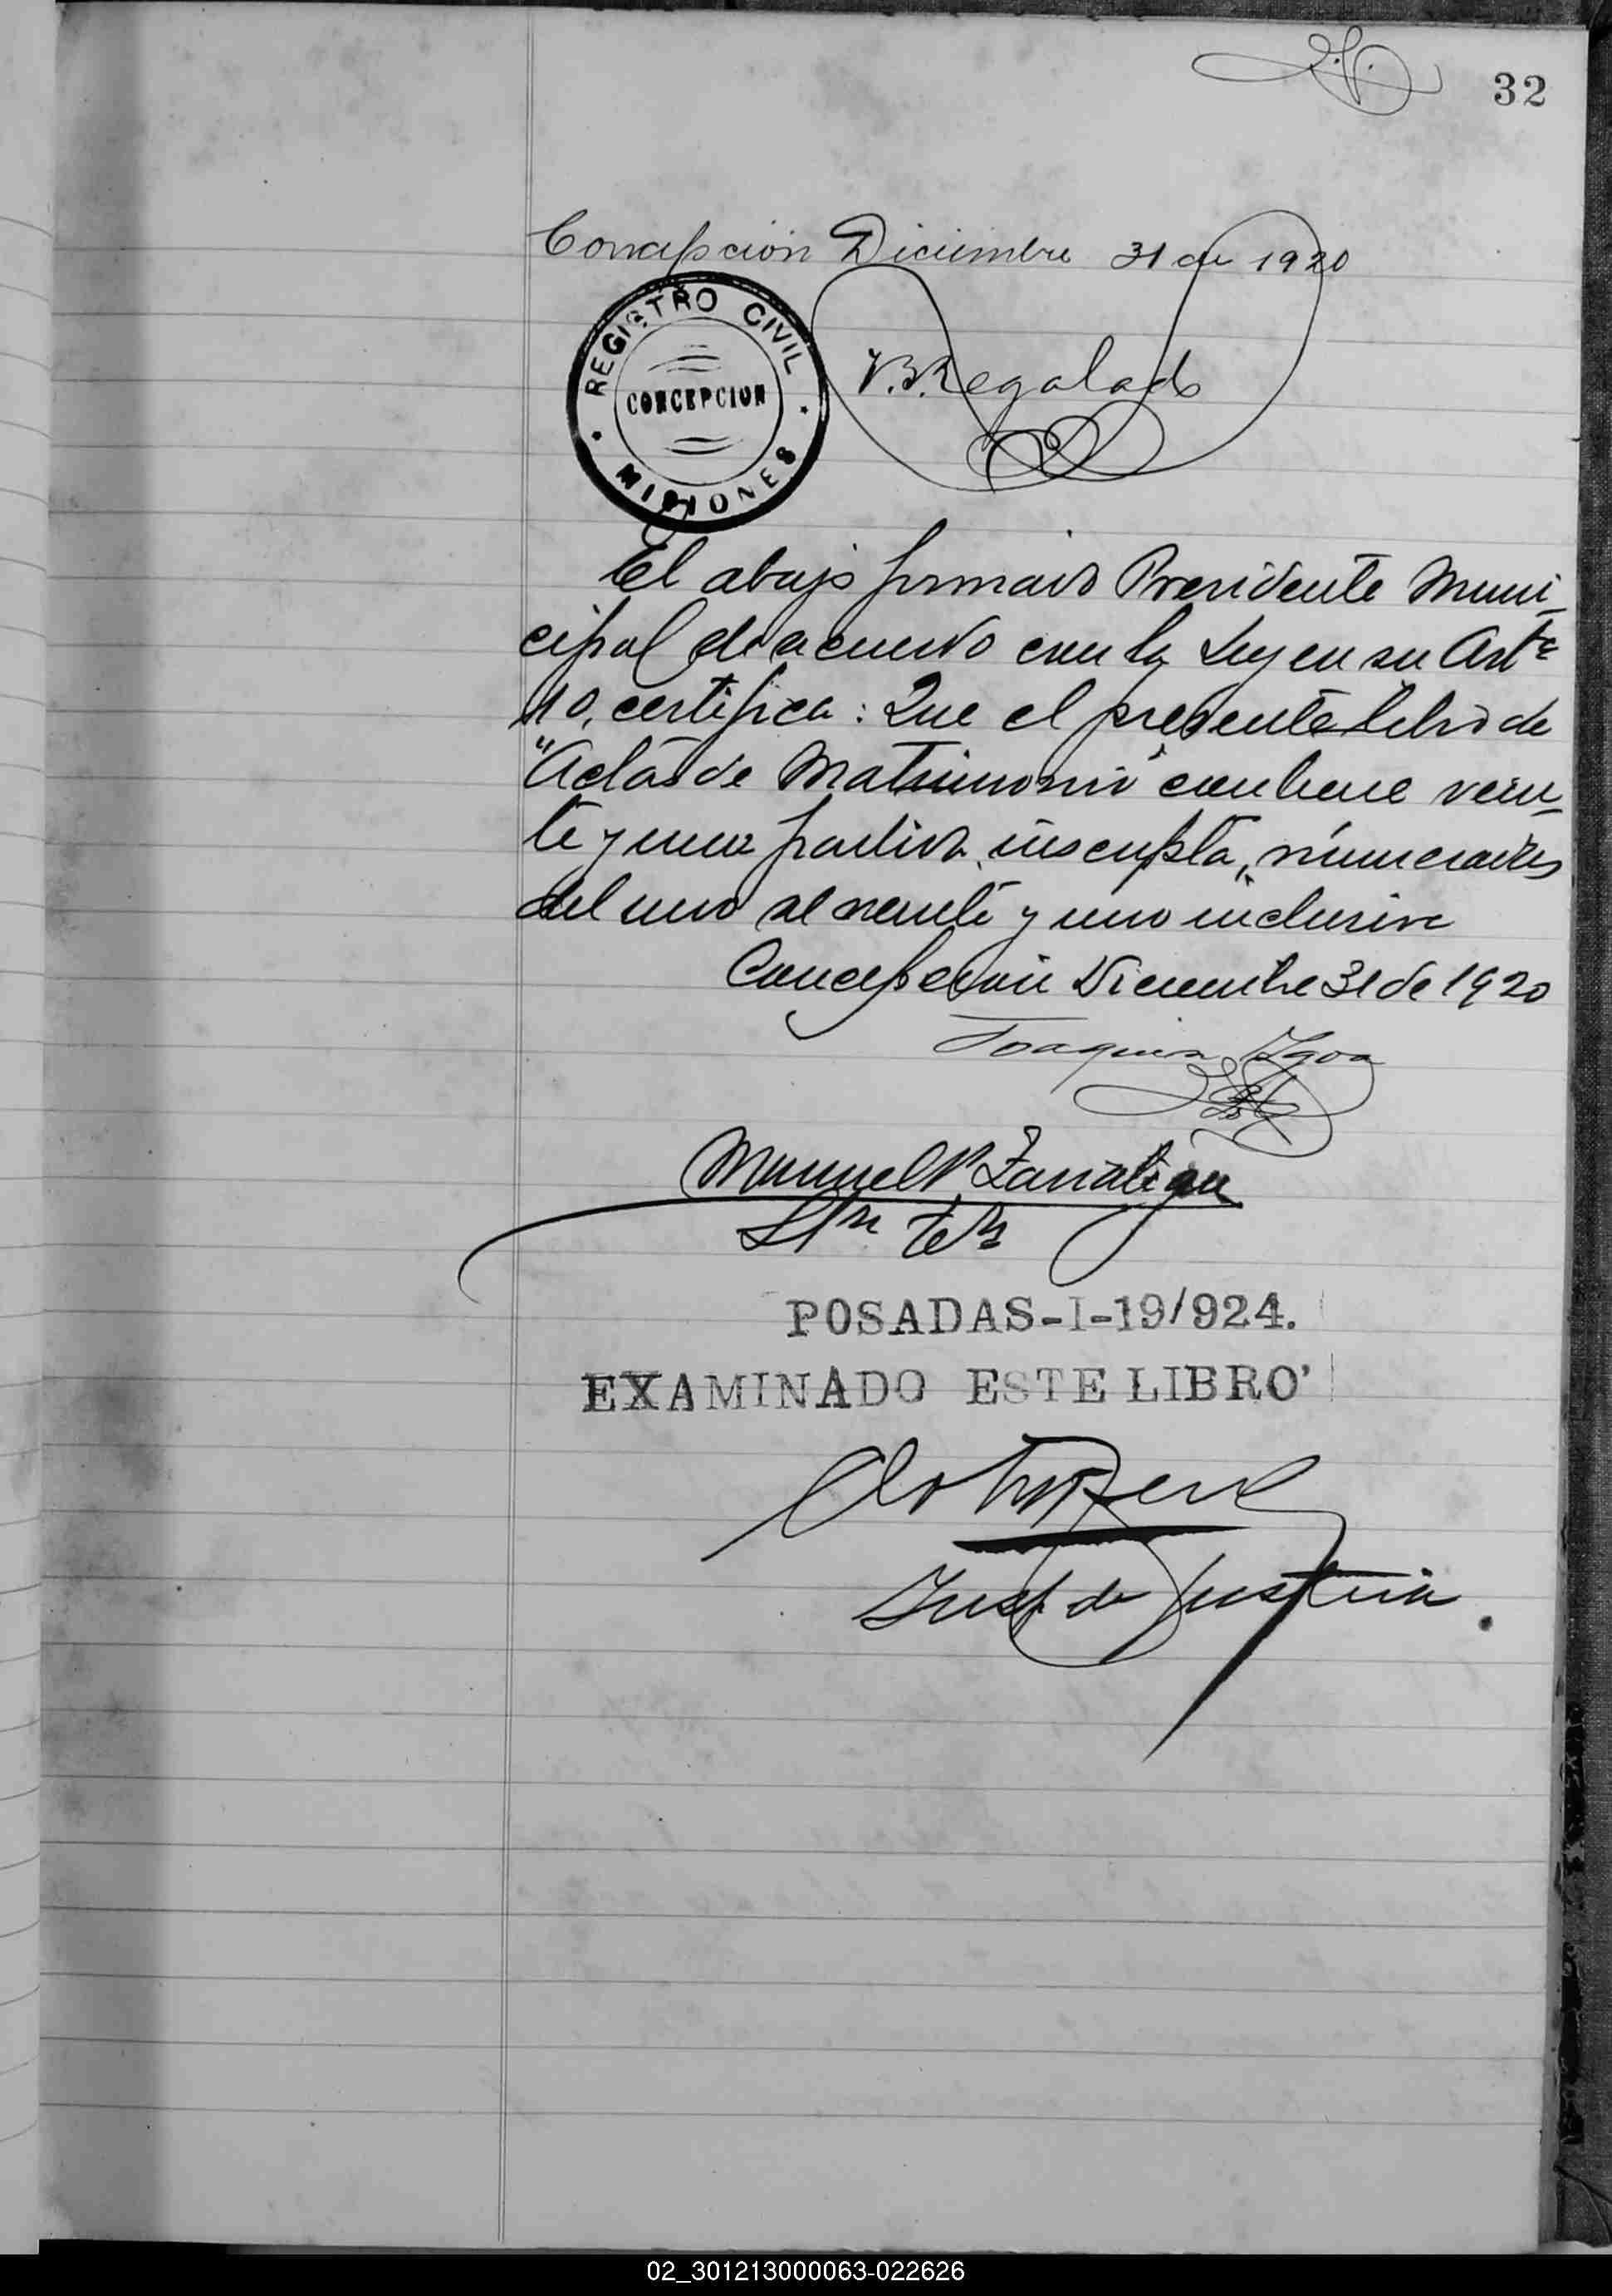 32
Concepción Diciembre 31 de 1920
REGISTRO CIVIL
CONCEPCION
MISIONES
V. B. Regalado
El abajo firmado Presidente Muni-
cipal de acuerdo con la Ley en su Art
10, certifica: Que el presente libro de
"Actas de Matrimonio" contiene vein-
te y una partida inscripta, numeradas
del uno al veinte y uno inclusive
Concepción Diciembre 31 de 1920
Joaquin Ygoa
Manuel
POSADAS-I-19/924.
EXAMINADO ESTE LIBRO
Insp. de Justicia.
02_301213000063-022626